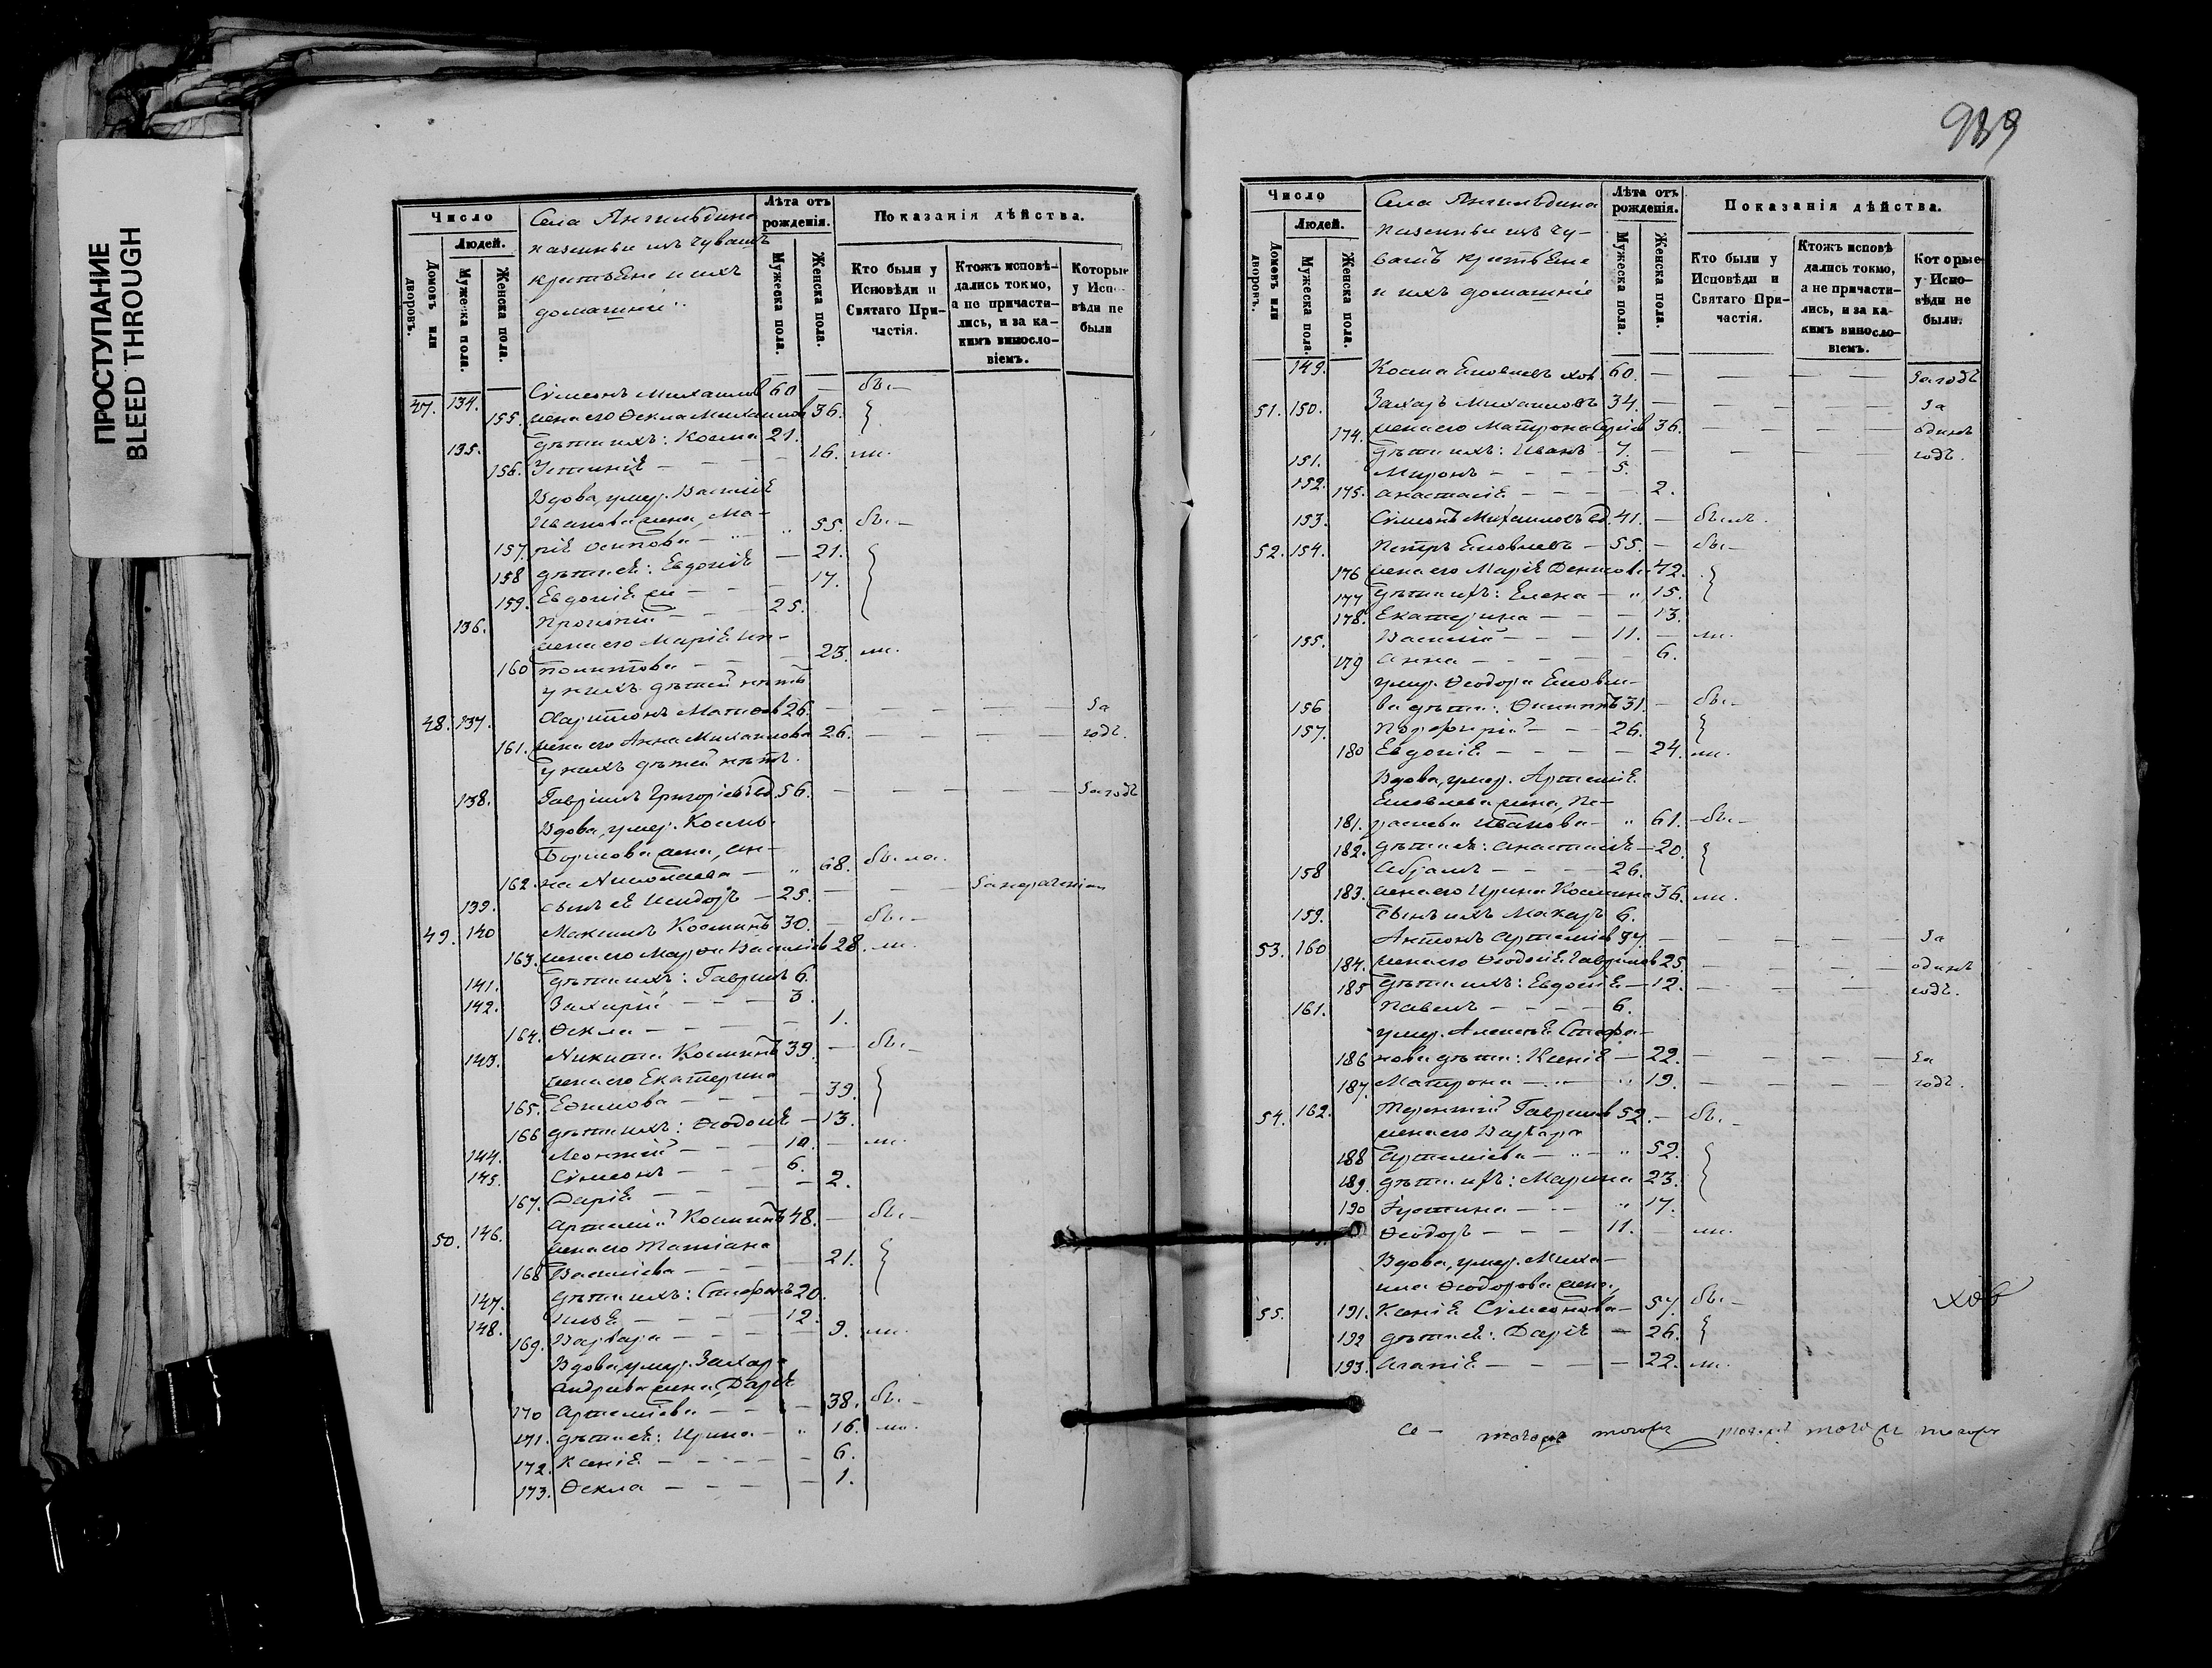 ПРОСТУПАНИЕ
BLEED THROUGH
Число
Людей.
Домовъ или дворовъ.
Мужеска пола.
Женска пола.
Села Янгильдина
казенные изъ чувашъ
крестьяне и ихъ
домашніе
Лѣта отъ рожденія.
Мужеска пола.
Женска пола.
Показанія дѣйства.
Кто были у Исповѣди и Святаго Причастія.
Ктожъ исповѣдались токмо, а не причастились, и за какимъ винословіемъ.
Которые у Исповѣди не были
47. 134. Сѵмеонъ Михаилов 60 — бы—
155. жена его Ѳекла Михаилов 36.
135. дѣти ихъ: Косма 21.
156. Устинія — — — 16. ли.
Вдова, умер. Василія
Иванова жена, Ма-
157. рія Осипова — " 55. бы—
158 дѣти ея: Евдокія — 21.
159. Евдокія — — 17.
136. Прокопій — — 25.
жена его Марія Ип-
160 политова — — 23. ли.
у нихъ дѣтей нѣтъ
48. 137. Харитонъ Матвѣев 26. — — — — За
161. жена его Анна Михаилова 26. — — — — годъ.
у нихъ дѣтей нѣтъ.
138. Гавріилъ Григорьевъ вд. 56. — — — — За годъ
Вдова, умер. Космы
Борисова жена, Ан-
162. на Николаева — " 68. была.
139. сынъ ея Исидоръ — 25. — — —
49. 140 Максимъ Косминъ 30. — бы—
163. жена его Марѳа Васильев 28. ли.
141. дѣти ихъ: Гавріилъ 6.
142. Захарій — — — 3.
164. Ѳекла — — — — 1.
143. Никита Косминъ 39. — бы—
жена его Екатерина
165. Ефимова — — — 39.
166 дѣти ихъ: Ѳеодосія — 13.
144. Леонтій — — — 10. — ли.
145. Сѵмеонъ — — — 6.
167. Дарія — — — — 2.
50. 146. Артемій Косминъ 48. — бы—
жена его Татіана
168 Васильева — — — 21.
147. дѣти ихъ: Стефанъ 20.
148. Илья — — — 12.
169. Варвара — — — — 9. ли.
Вдова, умер. Захара
Андреева жена, Дарія
170 Артеміева — — — 38. бы—
171. дѣти ея: Ирина — " 16. ли.
172. Ксенія — — — — 6.
173. Ѳекла — — — — 1.
939
Число
Людей.
Домовъ или дворовъ.
Мужеска пола.
Женска пола.
Села Янгильдина
казенные изъ чу-
вашъ крестьяне
и ихъ домашніе
Лѣта отъ рожденія.
Мужеска пола.
Женска пола.
Показанія дѣйства.
Кто были у Исповѣди и Святаго Причастія.
Ктожъ исповѣдались токмо, а не причастились, и за какимъ винословіемъ.
Которые у Исповѣди не были.
149. Косма Яковлевъ хол. 60. — — — — За годъ
51. 150. Захаръ Михаиловъ 34. — — — — За
174. жена его Матрона 36. — — — — одинъ
151. дѣти ихъ: Иванъ — 7. — — — — годъ.
152. Миронъ — — — — 5.
175. Анастасія — — — — 2.
153. Сѵмеонъ Михаиловъ вд. 41. — былъ.
52. 154. Петръ Яковлевъ — 55. — бы—
176 жена его Марія Денисова 42.
177 дѣти ихъ: Елена — " 15.
178. Екатерина — — — 13.
155. Василій — — — 11. — ли.
179 Анна — — — — — 6.
умер. Ѳеодора Яковле-
156 ва дѣти: 31. — бы—
157. Порфирій — — 26.
180 Евдокія — — — — 24. ли.
Вдова, умер. Артемія
Яковлева жена, Па-
181. расковья Иванова — " 61. — бы—
182. дѣти ея: Анастасія — 20.
158 Абрамъ — — — — 26.
183. жена его Ирина Космина 36. ли.
159. Сынъ ихъ Макаръ 6.
53. 160 Антонъ Артеміев 34. — — — — За
184. жена его Ѳеодосія Гаврилов 25. — — — — одинъ
185 дѣти ихъ: Евдокія — 12. — — — — годъ.
161. Павелъ — — — — 6.
умер. Алексѣя Стефа-
186 нова дѣти: Ксенія — 22. — — — — За
187. Матрона — " — " 19. — — — годъ.
54. 162. Терентій Гаврилов 52. — бы—
жена его Варвара
188 Артеміева — " — " 52.
189. дѣти ихъ: Марина 23.
190 Іустина — — — " 17.
Ѳеодоръ — — — 11. — ли.
Вдова, умер. Миха-
ила Ѳеодорова жена,
55. 191. Ксенія Сѵмеонова — 57. бы—
192 дѣти ея: Дарія — 26.
193. Агапія — — — — 22. ли.